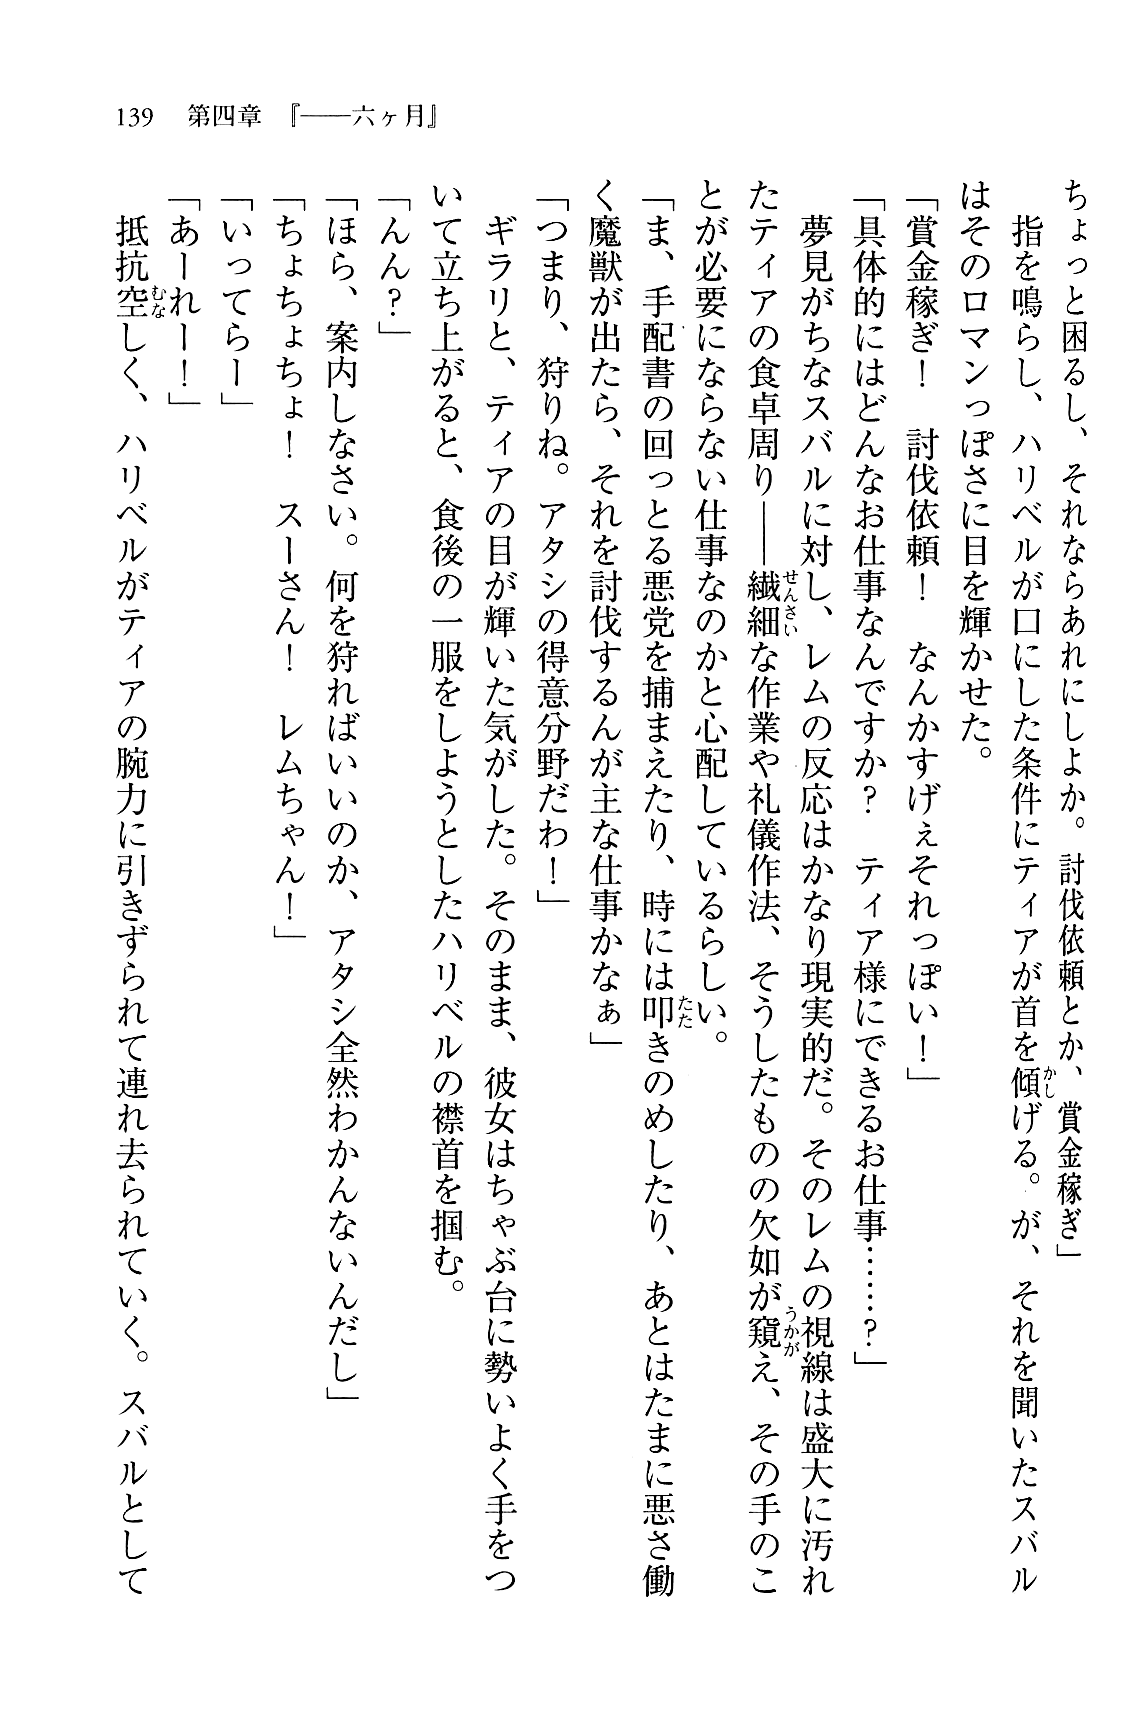 139　第四章　『――六ヶ月』
ちょっと困るし、それならあれにしよか。討伐依頼とか、賞金稼ぎ」
　指を鳴らし、ハリベルが口にした条件にティアが首を傾げる。が、それを聞いたスバル
はそのロマンっぽさに目を輝かせた。
「賞金稼ぎ！　討伐依頼！　なんかすげぇそれっぽい！」
「具体的にはどんなお仕事なんですか？　ティア様にできるお仕事……？」
　夢見がちなスバルに対し、レムの反応はかなり現実的だ。そのレムの視線は盛大に汚れ
たティアの食卓周り――繊細な作業や礼儀作法、そうしたものの欠如が窺え、その手のこ
とが必要にならない仕事なのかと心配しているらしい。
「ま、手配書の回っとる悪党を捕まえたり、時には叩きのめしたり、あとはたまに悪さ働
く魔獣が出たら、それを討伐するんが主な仕事かなぁ」
「つまり、狩りね。アタシの得意分野だわ！」
　ギラリと、ティアの目が輝いた気がした。そのまま、彼女はちゃぶ台に勢いよく手をつ
いて立ち上がると、食後の一服をしようとしたハリベルの襟首を掴む。
「んん？」
「ほら、案内しなさい。何を狩ればいいのか、アタシ全然わかんないんだし」
「ちょちょちょ！　スーさん！　レムちゃん！」
「いってらー」
「あーれー！」
　抵抗空しく、ハリベルがティアの腕力に引きずられて連れ去られていく。スバルとして